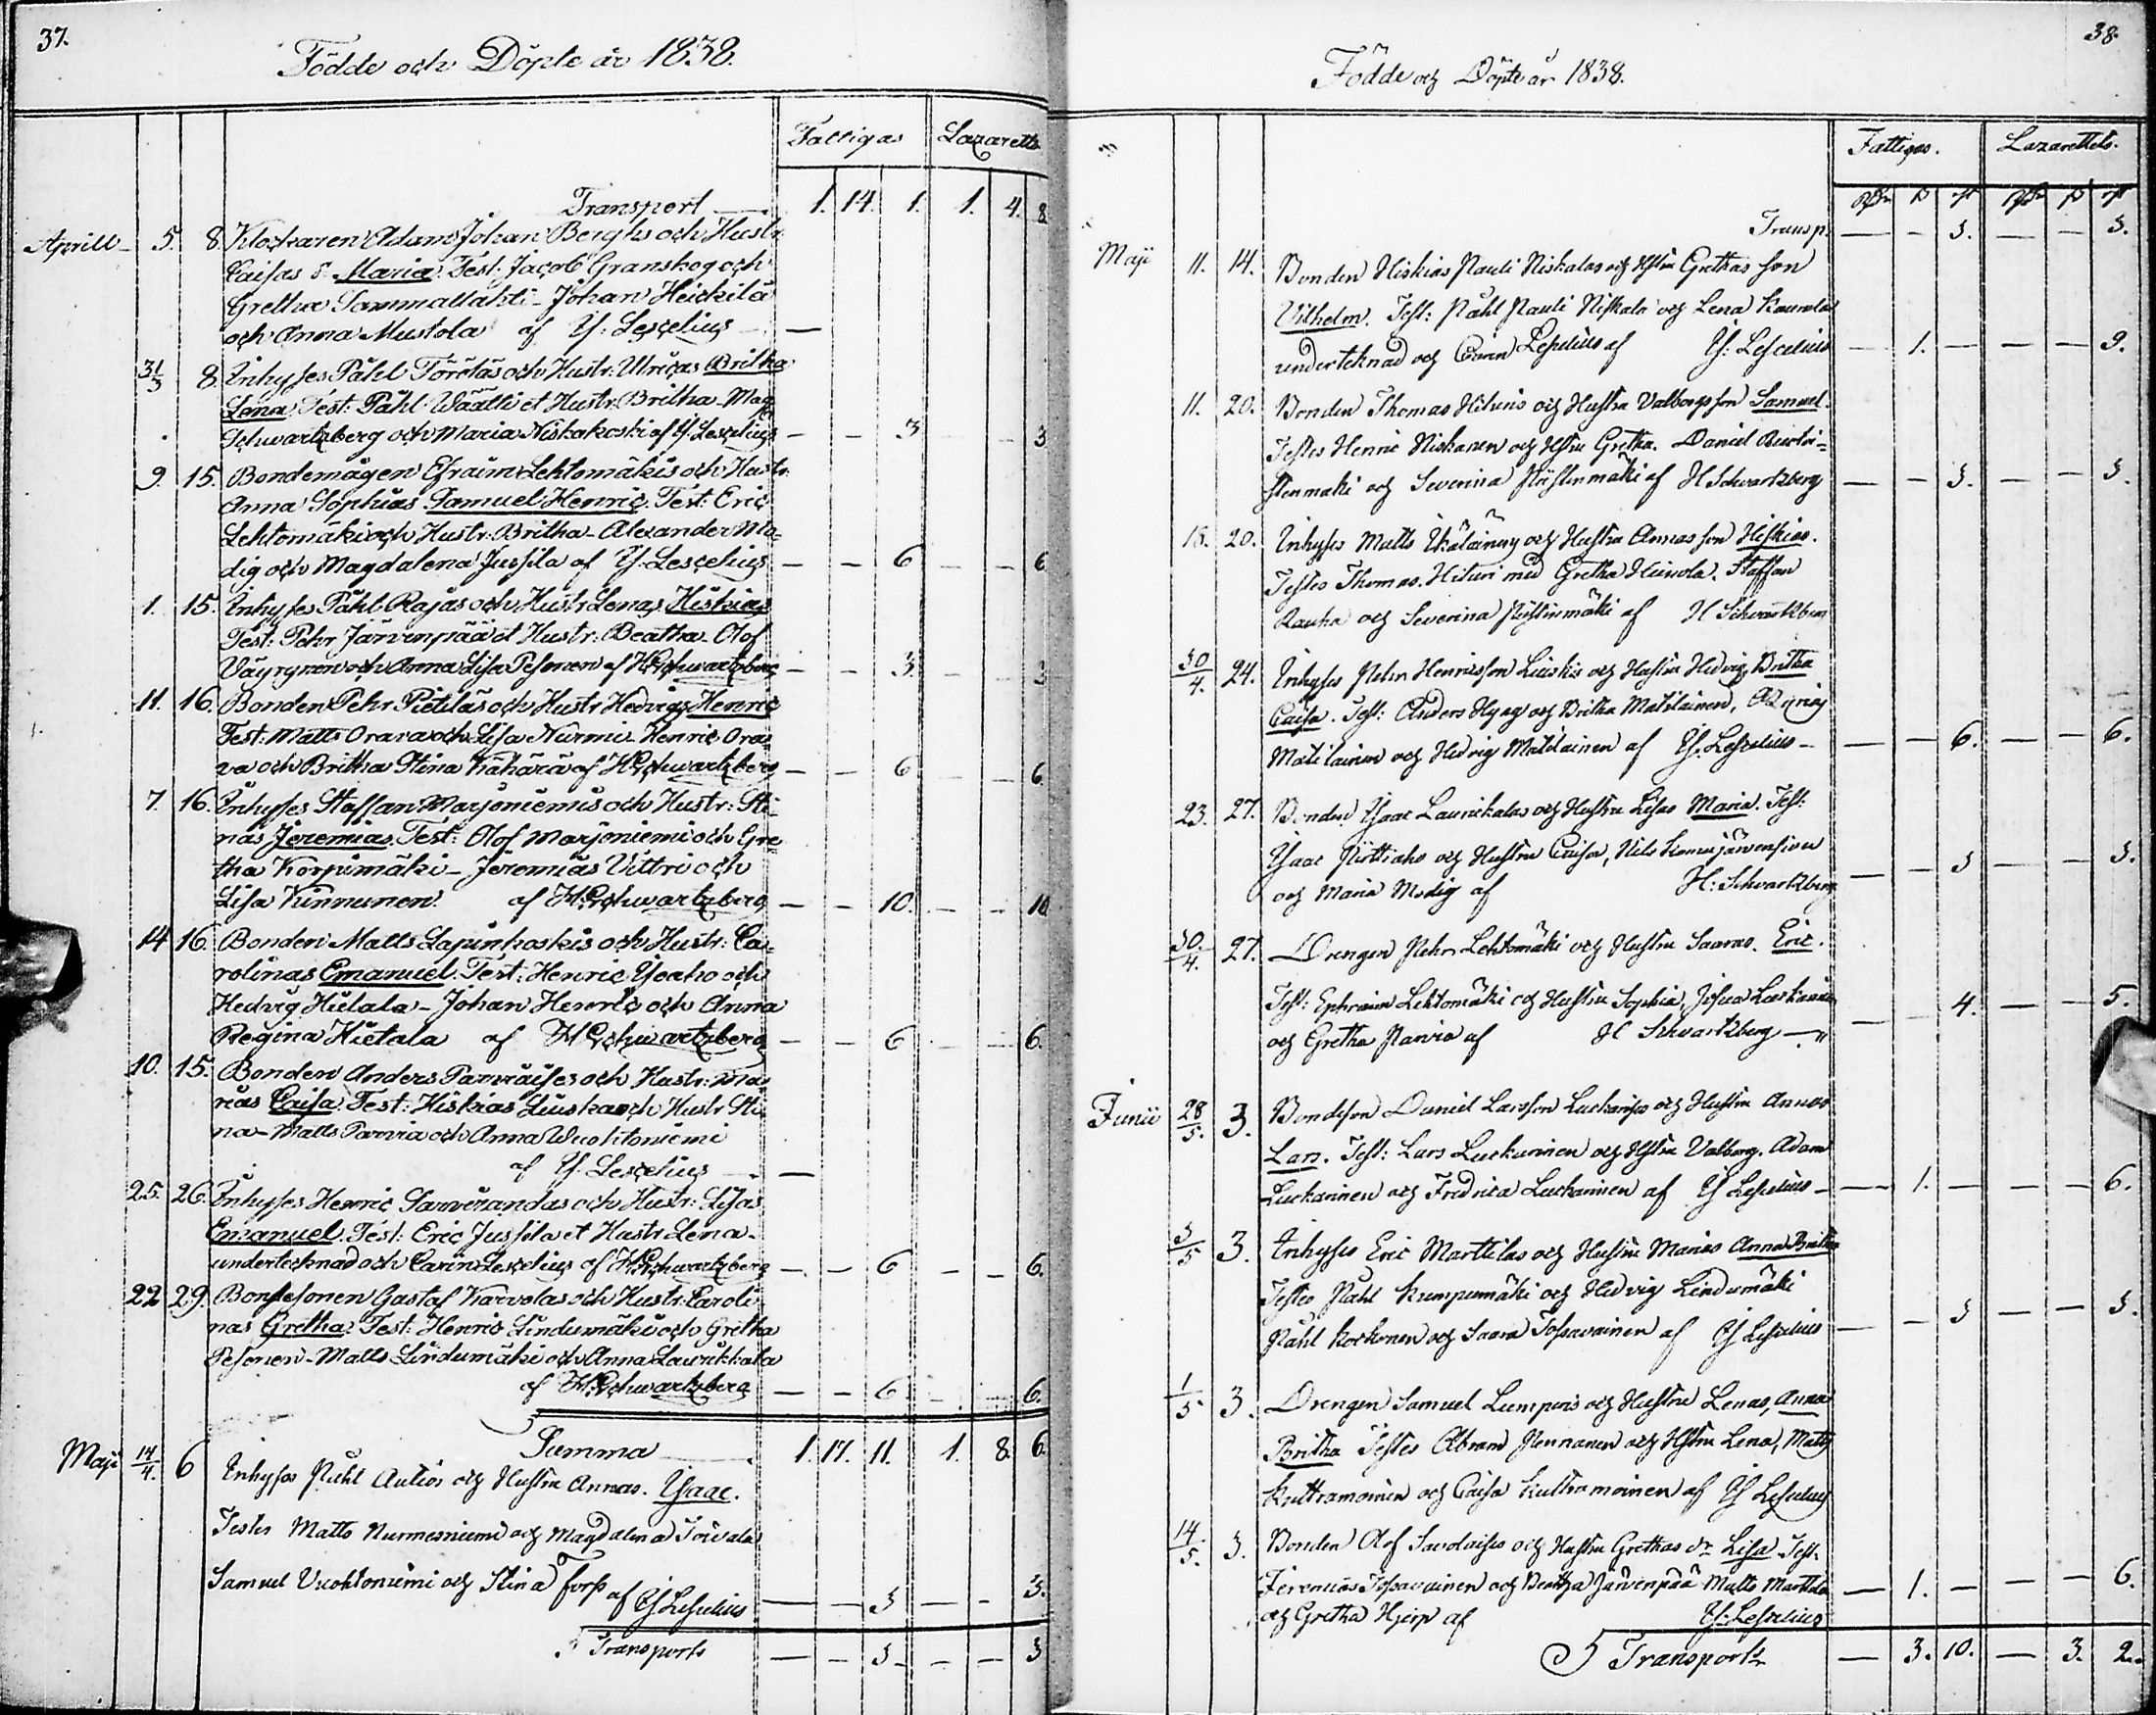 37.
Födde och Döpte år 1838.
Fattigas Lazaretts
Transport 1. 14. 1. 1. 4. 8
Aprill 5. 8. Klockaren Adam Johan Berghs och Hustr.
Caisas d. Maria. Test: Jacob Granskog och
Gretha Sammallahti - Johan Heickilä
och Anna Mustola af Y: Lescelius —
31/3 8. Inhyses Påhl Törölas och Hustr. Ulricas Britha
Lena. Test: Påhl Väätti et Hustr. Britha - Mag
Schwartzberg och Maria Niskakoski af Y. Lescelius — — 3 — 3
9. 15. Bondemågen Efraim Lehtomäkis och Hustr.
Anna Sophias Samuel Henric. Test: Eric
Lehtomäki och Hustr. Britha - Alexander Mo-
dig och Magdalena Jussila af Y. Lescelius — — 6 — — 6
1. 15. Inhyses Påhl Rajas och Hustr. Lenas Hiskias
Test: Pehr Järvenpää et Hustr. Beatha. Olof
Väyrynen och Anna Lisa Pesonen af H Schwartzberg — — 3. — — 3
11. 16. Bonden Pehr Pietiläs och Hustr. Hedvigs Henric
Test: Matts Orava och Lisa Nurmi - Henric Ora-
va och Britha Stina Kähärä af H Schwartzberg — — 6 — — 6
7. 16. Inhyses Staffan Marjoniemis och Hustr: Sti-
nas Jeremias. Test: Olof Marjoniemi och Gre-
tha Korpimäki - Jeremias Vittri och
Lisa Kinnunen. af H Schwartzberg — — 10. — — 10
14 16. Bonden Matts Lapinkoskis och Hustr: Ca-
rolinas Emanuel. Test: Henric Yoaho och
Hedvig Hietala - Johan Henric och Anna
Regina Hietala af H Schwartzberg — — 6 — — 6.
10. 15. Bonden Anders Parviaises och Hustr: Ma-
rias Caisa. Test: Hiskias Liuska och Hustr Sti-
na - Matts Parvia och Anna Wuohtoniemi
af Y. Lescelius —
25. 26. Inhyses Henric Sarverandas och Hustr: Lisas
Emanuel. Test: Eric Jussila et Hustr. Lena -
undertecknad och Carin Lescelius af H Schwartzberg — — 6 — — 6.
22 29. Bondesonen Gustaf Karvolas och Hustr. Caroli-
nas Gretha. Test: Henric Lindumäki och Gretha
Pesonen - Matts Lindumäki och Anna Laurikkala
af H Schwartzberg — — 6 — 6.
Summa 1. 17. 11. 1. 8. 6
Maji 14/4. 6 Inhyses Påhl Autios och Hustru Annas. Ysaac.
Testes Matts Nurmesniemi och Magdalena Toivala
Samuel Vuohtoniemi och Stina Forss af Y Lescelius — — 3 — — 3.
Transports — — 3 — — 3
38.
Födde och Döpte år 1838.
Fattigas. Lazarettets.
Transp. — — 3. — — 3.
Maji 11. 14. Bonden Hiskias Pauli Niskalas och Hstru Grethas son
Vilhelm. Test: Påhl Pauli Niskala och Lena Kaurola
underteknad och Carin Lescelius af Y: Lescelius — 1. — — — 9.
11. 20. Bonden Thomas Hituris och Hustru Valborgs son Samuel.
Testes Henric Niskanen och Hstru Gretha. Daniel
och Severina Ristinmäki af H Schwartzberg — — 3. — 3.
18. 20. Inhyses Matts Ikäläinens och Hustru Annas son Hiskias.
Testes Thomas Hituri med Gretha Heinola. Staffan
Rauha och Severina Ristinmäki af H Schwartzberg
30/4. 24. Inhyses Pehr Henricsson Liuskis och Hustru Hedvigs Britha
Caisa. Test: Anders Hyry och Britha Matilainen,
Matilainen och Hedvig Matilainen af Y. Lescelius — — — 6. — — 6.
23. 27. Bonden Ysaac Laurikalas och Hustru Lisas Maria. Test:
Ysaac Pyttiaho och Hustru Caisa, Nils
och Maria Modig af H: Schwartzberg — — 3 — — 3.
30./4. 27. Drengen Pehr Lehtomäki och Hustru Saaras. Eric.
Test: Ephraim Lehtomäki och Hustru Sophia, Josua Luckarinen
och Gretha Parvia af H Schwartzberg — — 4. — — 5.
Junii 28/5. 3. Bondeson Daniel Larsson Luckarises och Hustru Annas
Lars. Test: Lars Luckarinen och Hstru Valborg. Adam
Luckarinen och Fredrica Luckarinen af Y Lescelius — — 1. — — — 6.
3/5 3. Inhyses Eric Marttilas och Hustru Marias Anna Britha
Testes Påhl Kumpumäki och Hedvig Lindumäki
Påhl Korhonen och Saara Tossavainen af Y Lescelius — — 3 — — 3.
1/5 3. Drengen Samuel Lumpois och Hustru Lenas, Anna
Britha Testes Abram Pennanen och Hstru Lena, Matts
Kuttramoinen och Caisa Kuttramoinen af Y Lescelius
14/5. 3. Bonden Olof Savolaises och Hustru Grethas dr Lisa Test:
Jeremias Tossavainen och Beatha Järvenpää Matts Marttila
och Gretha Hjerp af Y: Lescelius — 1. — — — 6.
Transport — 3. 10. — 3. 2.